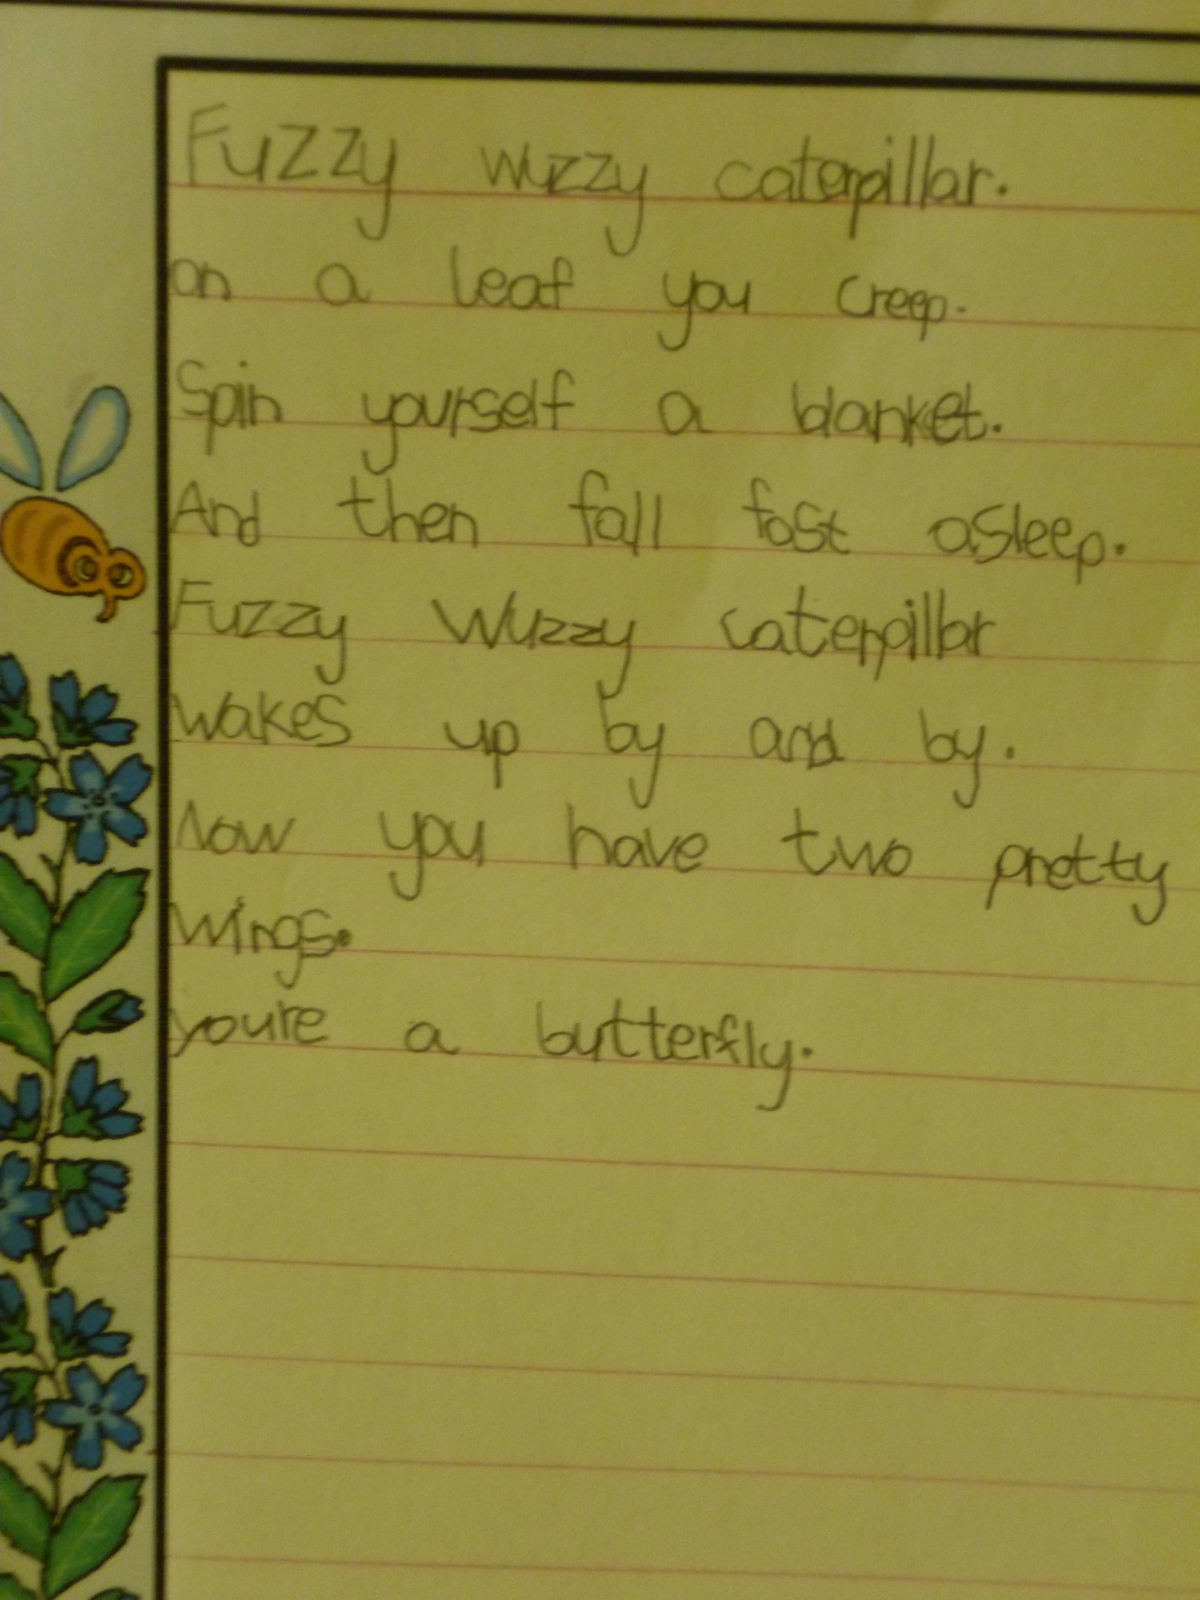 Fuzzy wuzzy caterpillar.
on a leaf you creep.
Spin yourself a blanket.
And then fall fast asleep.
Fuzzy Wuzzy caterpillar
Wakes up by and by.
Now you have two pretty
Wings.
youre a butterfly.